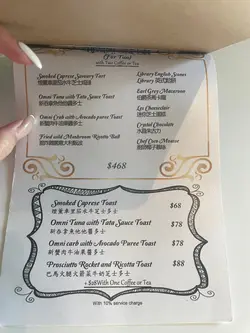 (For Two)
with Two Coffee or Tea
Smoked Caprese Savoury Tart
Omni Tuna with Tata Sauce Toast
Omni Carb with Avocado puree Toast
Fried wild Mushroom Ricotta Ball
Library English Scones
Library 英式鬆餅
Earl Grey Macaroon
伯爵茶馬卡龍
Les Cheesecloir
Crystal Chocolate
Chef Corn Mousse
$468
Smoked Caprese Toast $68
煙薰車厘茄水牛芝士多士
Omni Tuna with Tata Sauce Toast $78
新吞拿魚他他醬多士
Omni carb with Avocado Puree Toast $78
新蟹肉牛油果醬多士
Prosciutto Rocket and Ricotta Toast $88
巴馬火腿火箭菜牛奶芝士多士
+ $28 With One Coffee or Tea
With 10% service charge